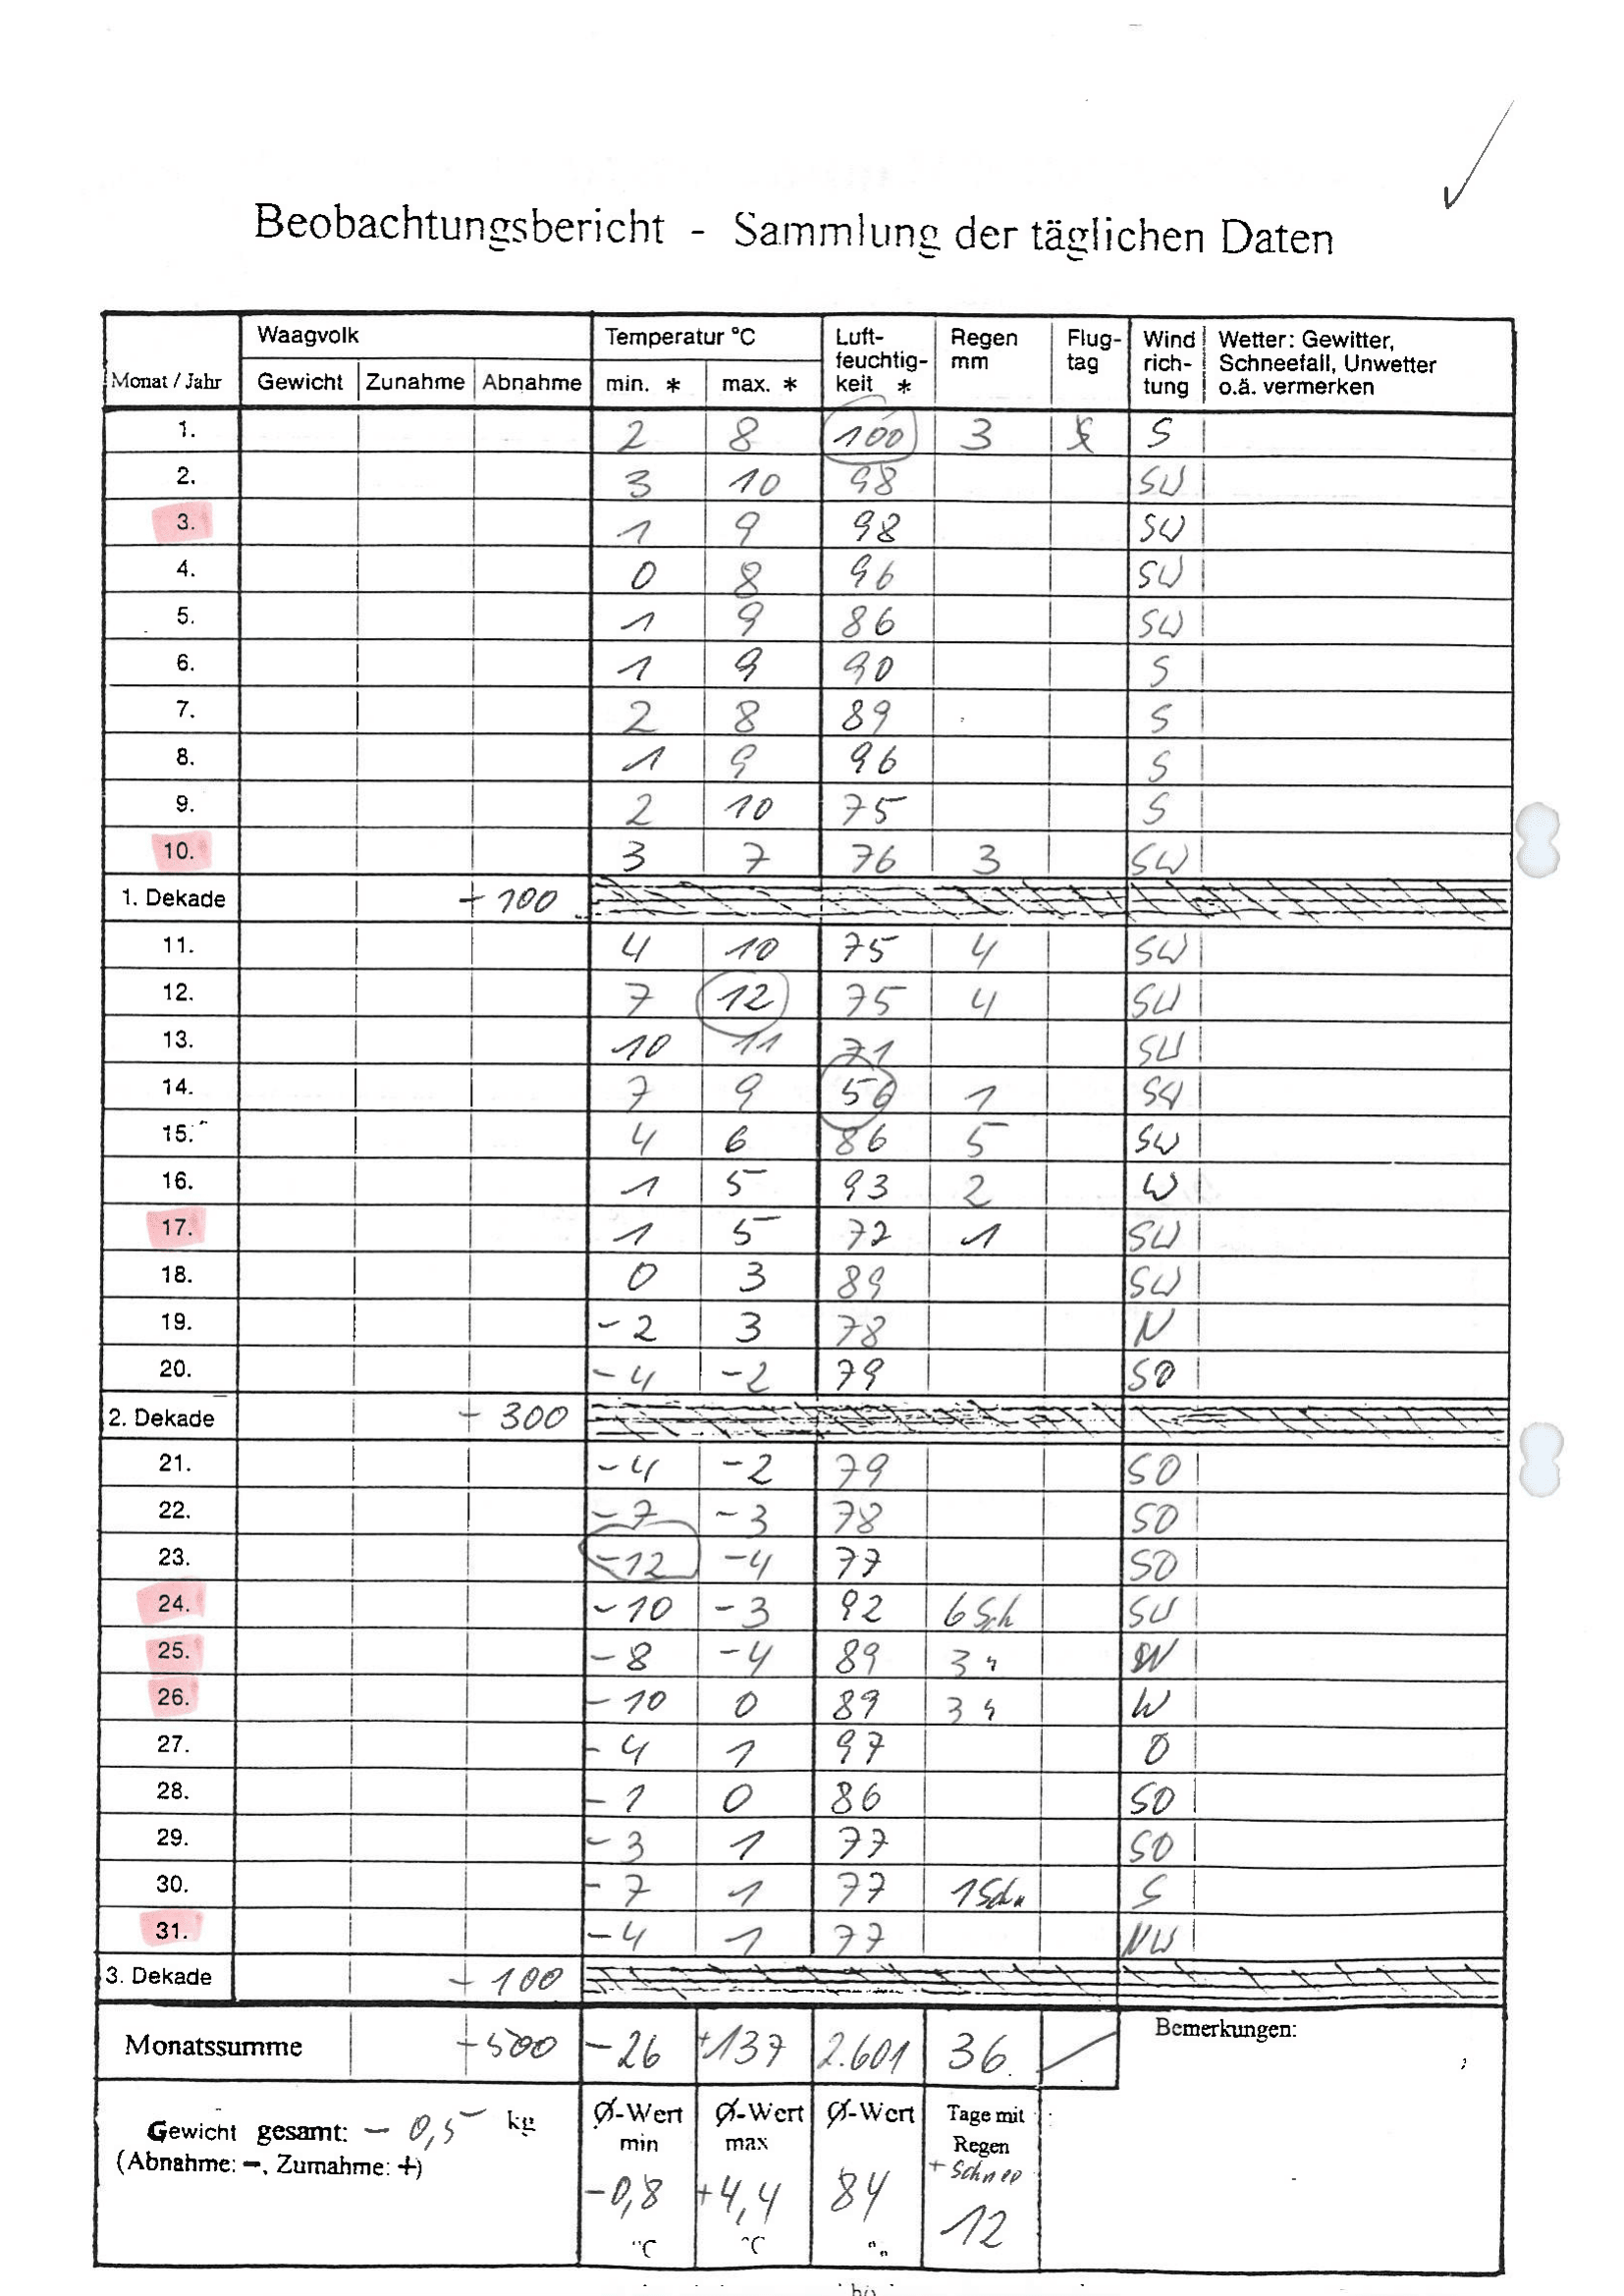 Beobachtungsbericht - Sammlung der täglichen Daten
Monat / Jahr Waagvolk Temperatur °C Luft-feuchtig-keit * Regen mm Flug-tag Wind rich-tung Wetter: Gewitter, Schneefall, Unwetter o.ä. vermerken
Gewicht Zunahme Abnahme min. * max. *
1. 2 8 100 3 S
2. 3 10 98 SW
3. 1 9 98 SW
4. 0 8 96 SW
5. 1 9 86 SW
6. 1 9 90 S
7. 2 8 89 S
8. 1 9 96 S
9. 2 10 75 S
10. 3 7 76 3 SW
1. Dekade - 100
11. 4 10 75 4 SW
12. 7 12 75 4 SW
13. 10 11 71 SW
14. 7 9 56 1 SW
15. 4 6 86 5 SW
16. 1 5 93 2 W
17. 1 5 72 1 SW
18. 0 3 89 SW
19. -2 3 78 N
20. -4 -2 79 SO
2. Dekade - 300
21. -4 -2 79 SO
22. -7 -3 78 SO
23. -12 -4 77 SO
24. -10 -3 92 6 Sch SW
25. -8 -4 89 3 " W
26. -10 0 89 3 " W
27. -4 1 97 O
28. -1 0 86 SO
29. -3 1 77 SO
30. -7 1 77 1 Sch. S
31. -4 1 77 NW
3. Dekade - 100
Monatssumme -500 -26 +137 2.601 36 Bemerkungen:
Gewicht gesamt: - 0,5 kg
(Abnahme: -, Zumahme: +)
Ø-Wert min Ø-Wert max Ø-Wert Tage mit Regen + Schnee
-0,8 +4,4 84 12
°C °C